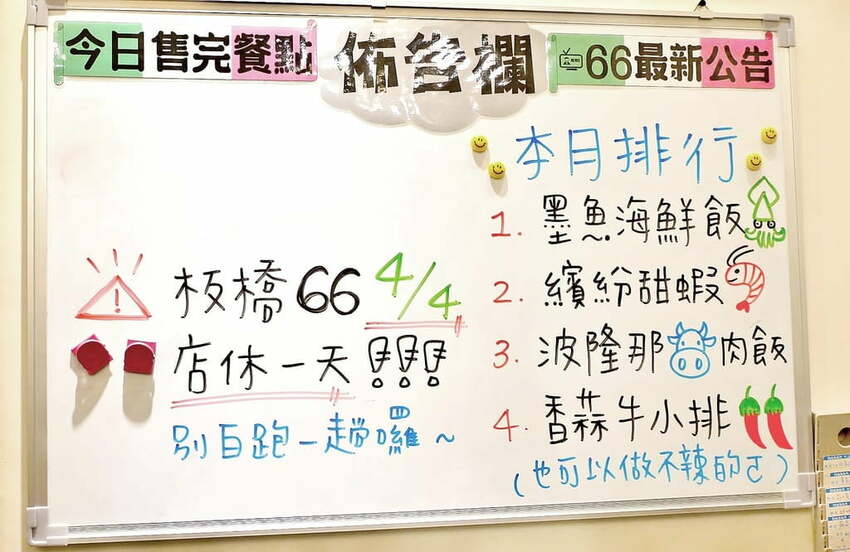 今日售完餐點
佈告欄
66最新公告
板橋66 4/4
店休一天!!!
別白跑一趟囉~
本月排行
1. 墨魚海鮮飯
2. 繽紛甜蝦
3. 波隆那肉飯
4. 香蒜牛小排
(也可以做不辣的ㄛ)